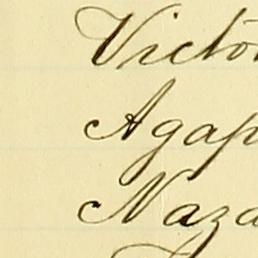 Victo
Agap
Naza